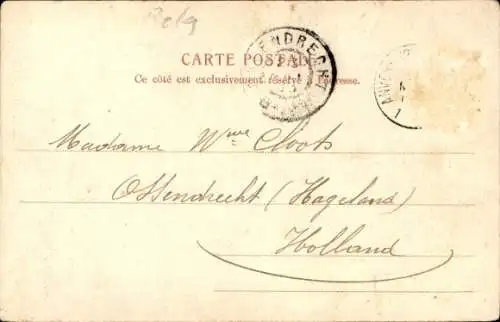 Belg
CARTE POSTALE
Ce côté est exclusivement réservé à l'adresse.
Madame Wwe Cloots
Ossendrecht (Hageland)
Holland